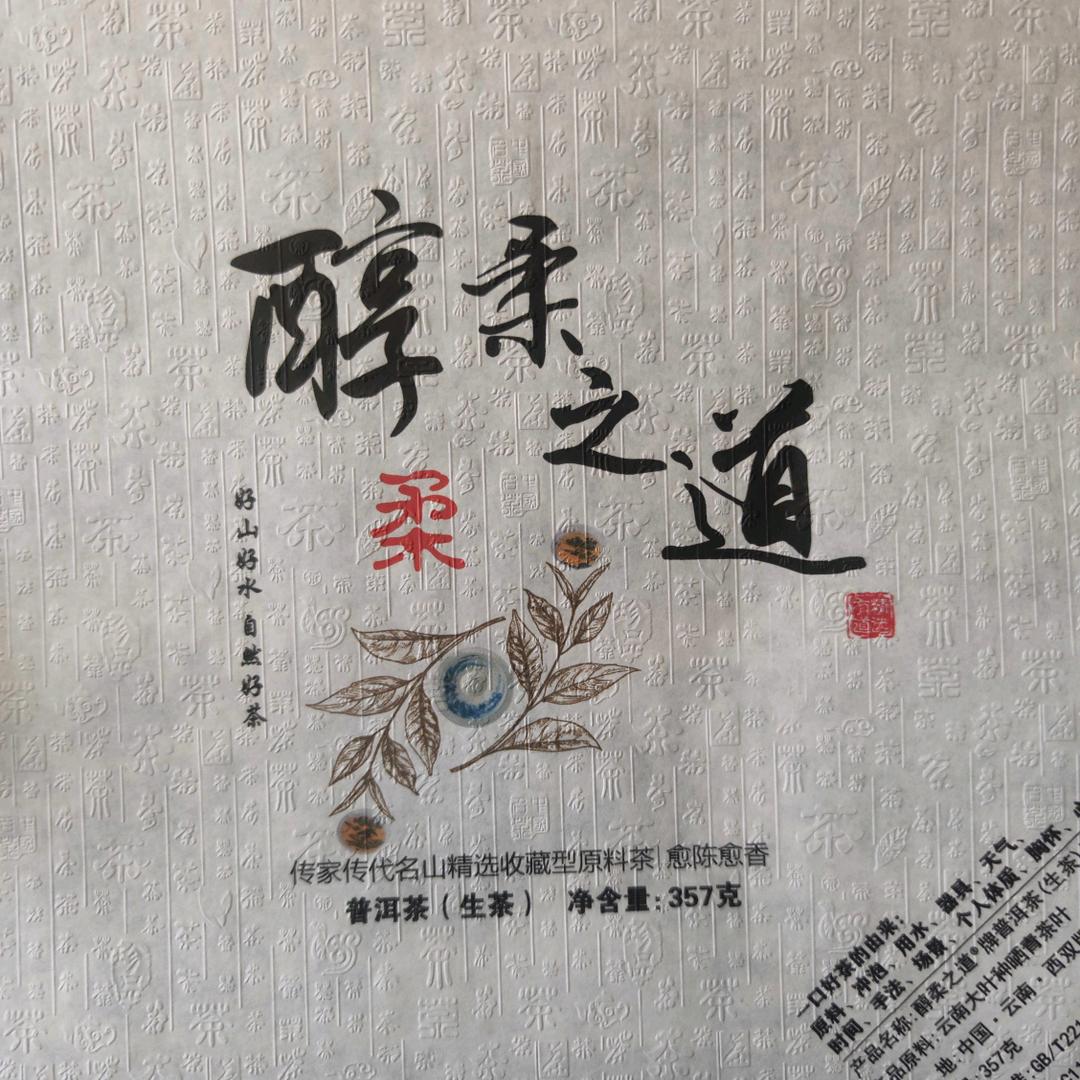 醇柔之道
柔
好山好水 自然好茶
精选
有道
传家传代名山精选收藏型原料茶| 愈陈愈香
普洱茶（生茶） 净含量：357克
一口好茶的由来：
原料、冲泡、用水、器具、天气、
时间、手法、场景、个人体质、胸怀、
产品名称：醇柔之道®牌普洱茶(生茶)
品原料：云南大叶种晒青茶叶
地：中国·云南·西双
357克
GB/T221